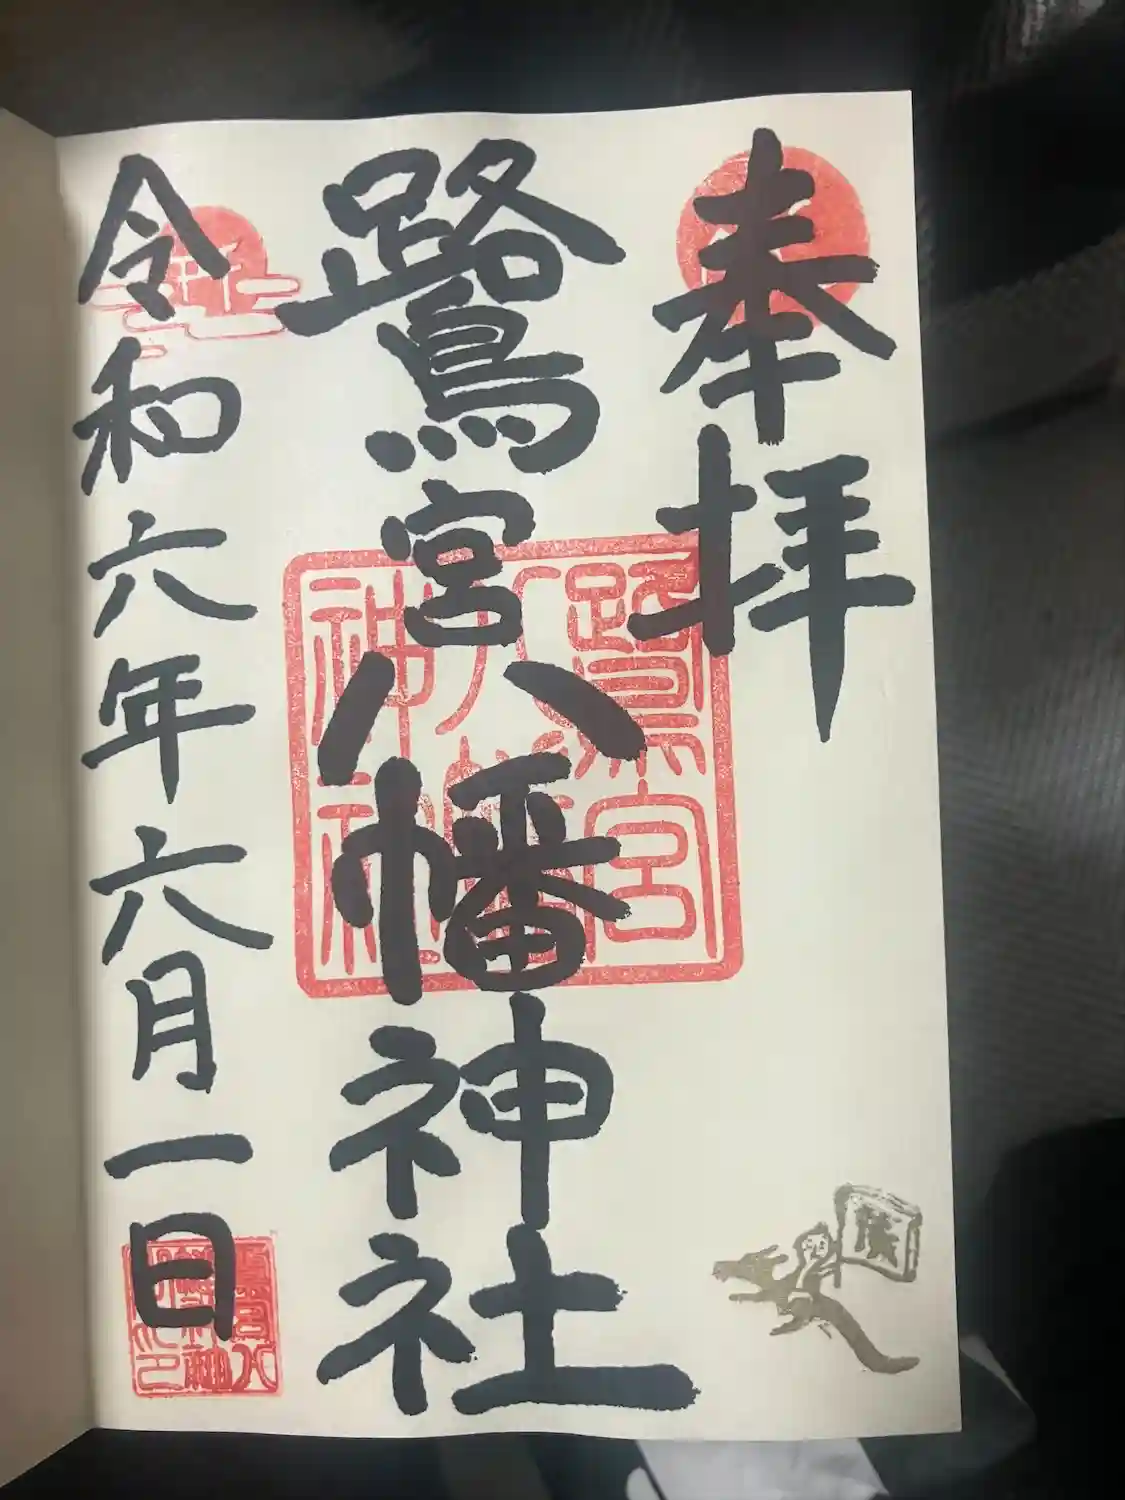 奉拝
鷺宮八幡神社
令和六年六月一日
鷺宮
八幡
神社